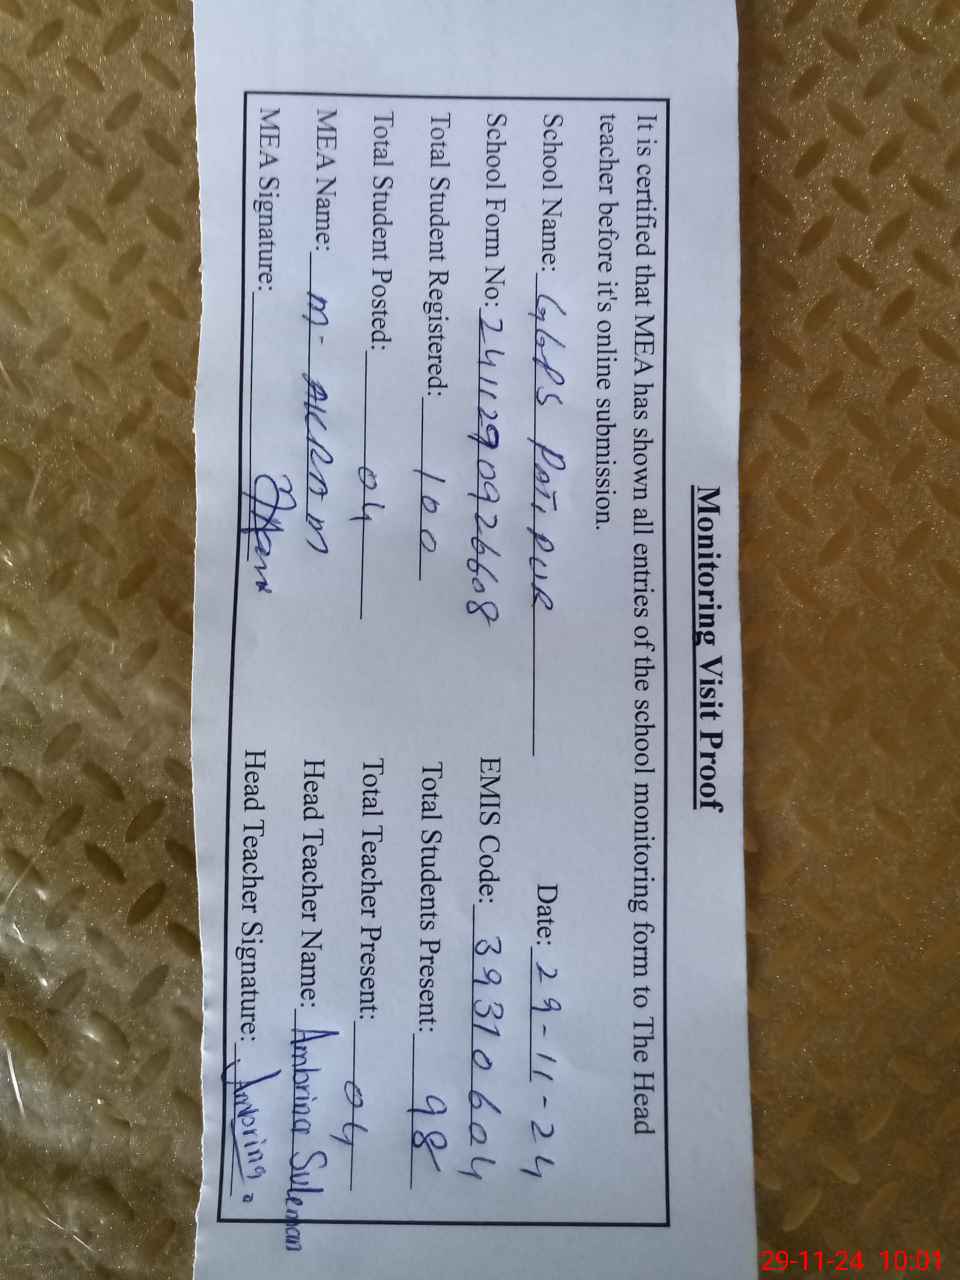 Monitoring Visit Proof
It is certified that MEA has shown all entries of the school monitoring form to The Head
teacher before it's online submission.
School Name: GGPS Date: 29-11-24
School Form No: 2411290926608 EMIS Code: 39310604
Total Student Registered: 100 Total Students Present: 98
Total Student Posted: 04 Total Teacher Present: 04
MEA Name: M- AKRAM Head Teacher Name: Ambrina Suleman
MEA Signature: Head Teacher Signature: Ambrina
29-11-24 10:01